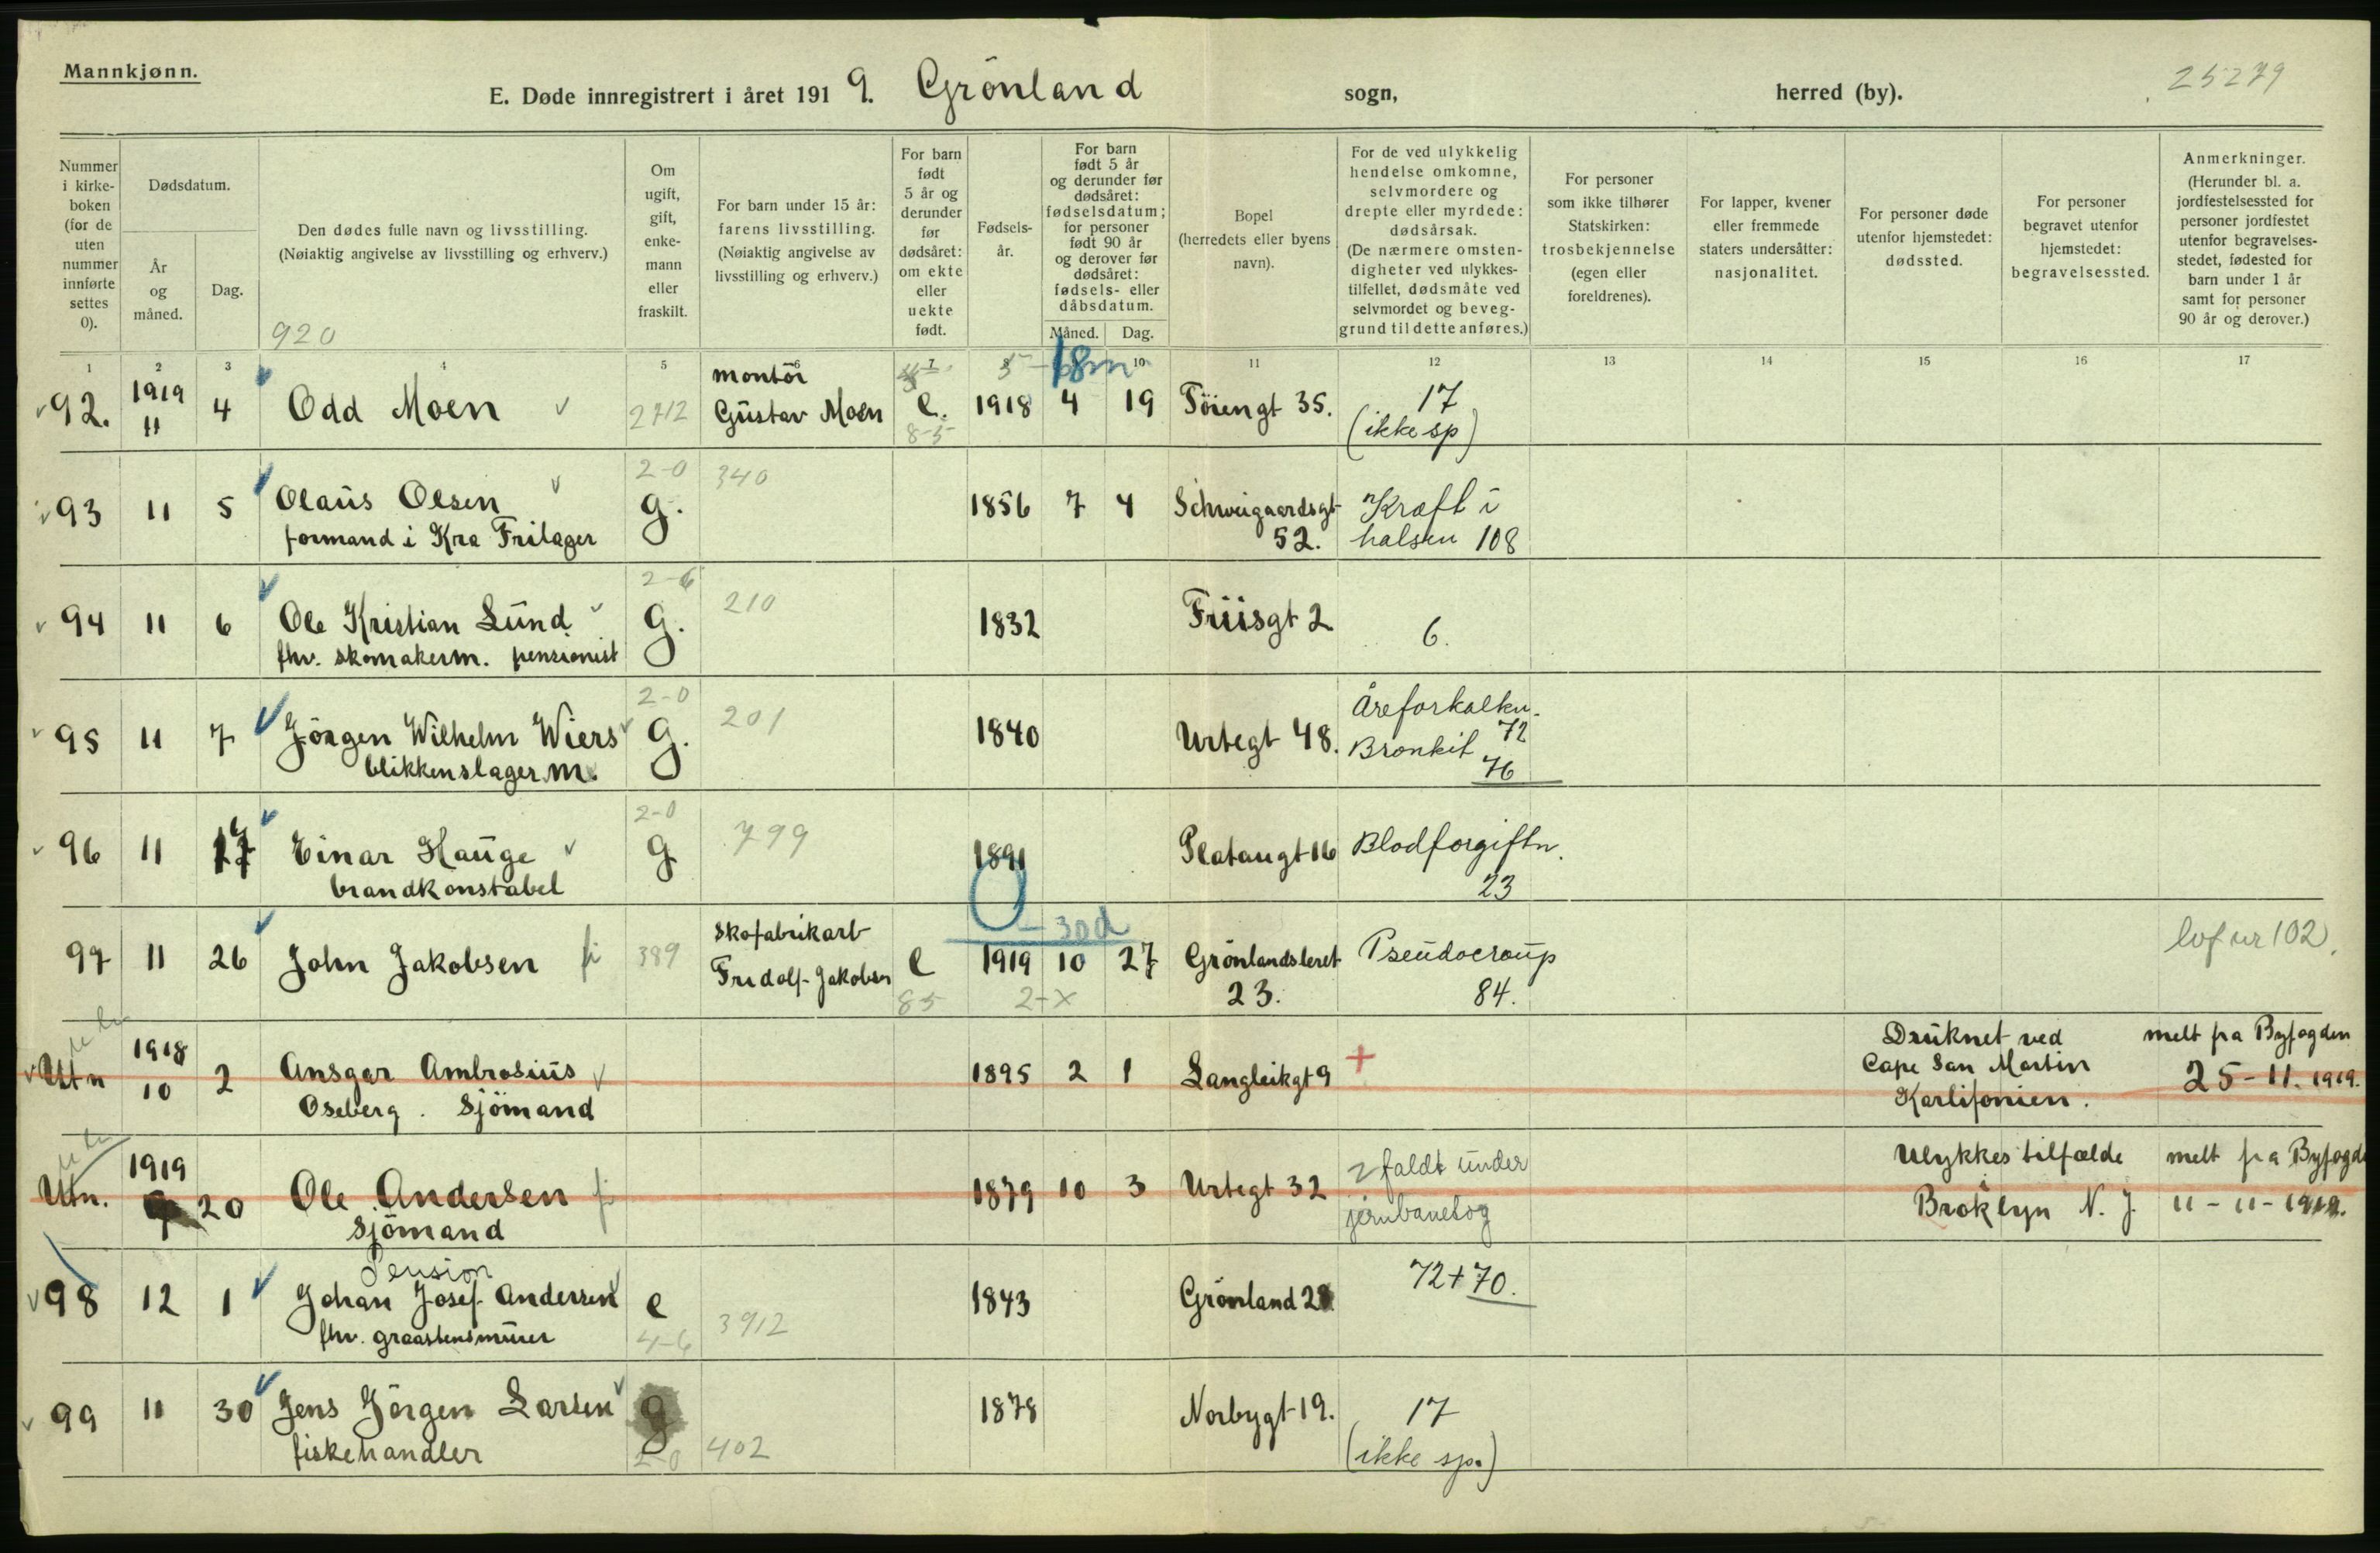 Mannkjønn.
E. Døde innregistrert i året 191 9. Grönland sogn, herred (by). 25279
Nummer i kirke- boken (for de uten nummer innførte settes 0).
Dødsdatum.
År og måned.
Dag.
Den dødes fulle navn og livsstilling.
(Nøiaktig angivelse av livsstilling og erhverv.)
920
Om ugift, gift, enke- mann eller fraskilt.
For barn under 15 år: farens livsstilling. (Nøiaktig angivelse av livsstilling og erhverv.)
For barn født 5 år og derunder før dødsåret: om ekte eller uekte født.
Fødsels- år.
For barn født 5 år og derunder før dødsåret: fødselsdatum; for personer født 90 år og derover før dødsåret: fødsels- eller dåbsdatum.
Måned. Dag.
Bopel (herredets eller byens navn).
For de ved ulykkelig hendelse omkomne, selvmordere og drepte eller myrdede: dødsårsak. (De nærmere omsten- digheter ved ulykkes- tilfellet, dødsmåte ved selvmordet og beveg- grund til dette anføres.)
For personer som ikke tilhører Statskirken: trosbekjennelse (egen eller foreldrenes).
For lapper, kvener eller fremmede staters undersåtter: nasjonalitet.
For personer døde utenfor hjemstedet: dødssted.
For personer begravet utenfor hjemstedet: begravelsessted.
Anmerkninger. (Herunder bl. a. jordfestelsessted for personer jordfestet utenfor begravelses- stedet, fødested for barn under 1 år samt for personer 90 år og derover.)
1 2 3 4 5 6 7 8 10 11 12 13 14 15 16 17
18m
1919 montör
92. 11 4 Odd Moen 2712 Gustav Moen e. 1918 4 19 Töiengt 35. 17
8-5 (ikke sp)
2-0 340
93 11 5 Olaus Olsen g. 1856 7 4 Schweigaardsgt Kræft i
formand i Kra Frilager 52. halsen 108
2-6 210
94 11 6 Ole Kristian Lund g. 1832 Friisgt 2 6.
fhv. skomakerm. pensionist
2-0 201 Åreforkalkn. 72
95 11 7 Jörgen Wilhelm Wiers g. 1840 Urtegt 48. Bronkit
blikkenslager m. 76
2-0 799
96 11 17 Einar Hauge g 1891 Platougt 16 Blodforgiftn.
brandkonstabel 23
0 - 30d
skofabrikarb
97 11 26 John Jakobsen fi 389 Fridolf Jakobsen e 1919 10 27 Grönlandsleret Pseudocroup
85 2-x 23. 84.
1918 Druknet ved melt fra Byfogden
Utn 10 2 Ansgar Ambrosius 1895 2 1 Langleikgt 9 + Cape San Martin 25-11. 1919.
Oseberg. Sjömand Karlifonien.
1919 2 faldt under Ulykkestilfælde melt fra Byfogd
Utn. 20 Ole Andersen fi 1879 10 3 Urtegt 32 jernbanetog Broklyn N. J. 11-11-1919.
Sjömand
Pension
98 12 1 Johan Josef Andersen e 1843 Grönland 28 72+70.
fhv. graastensmurer 4-6 3912
99 11 30 Jens Jörgen Larsen g 1878 Norbygt 19. 17
fiskehandler 2-0 402 (ikke sp.)